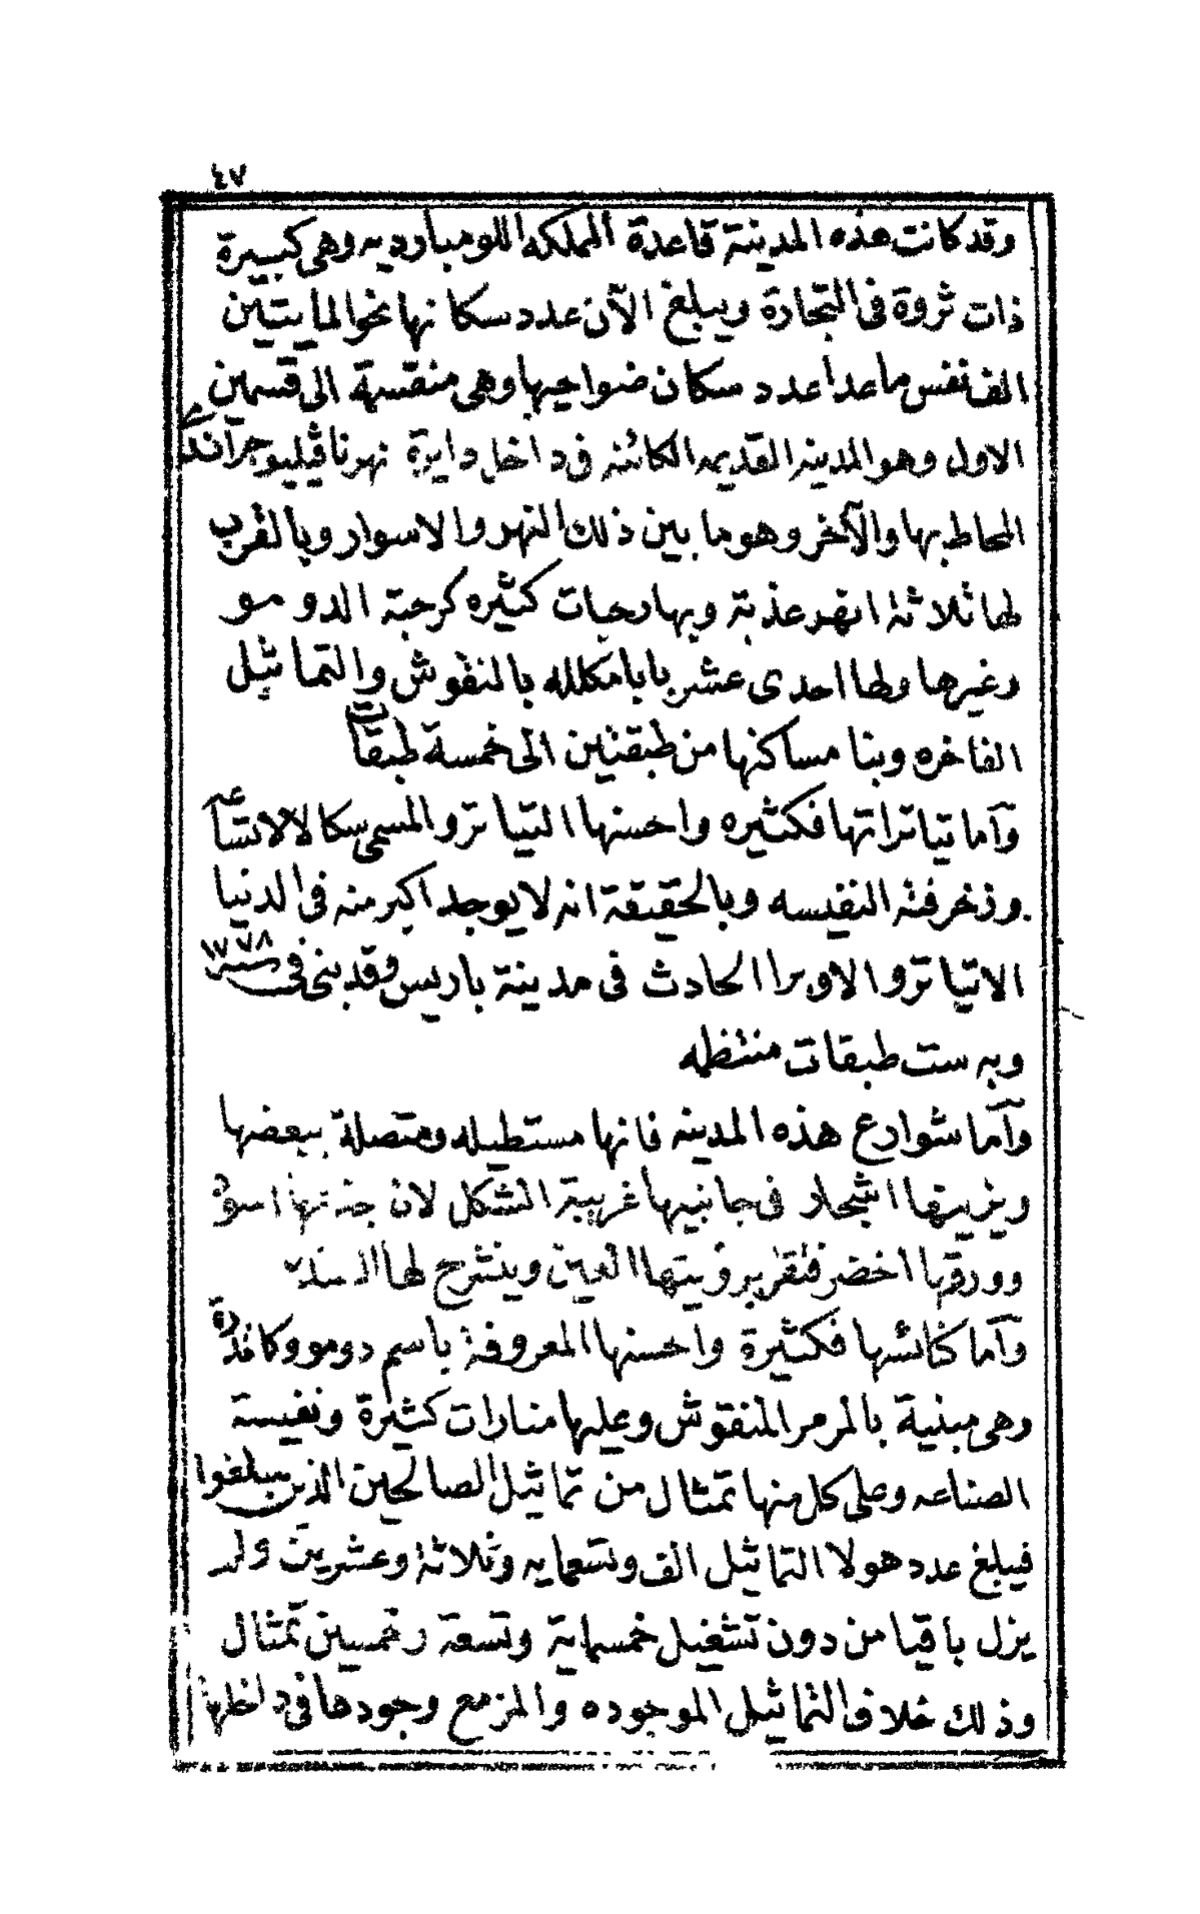 ٤٧
وقد كانت هذه المدينة قاعدة المملكه اللومبارديه وهى كبيرة
ذات ثروة فى التجارة ويبلغ الآن عدد سكانها نحوالمايتين
الف نفس ماعدا عدد سكان ضواحيها وهى منقسمة الى قسمين
الاول وهوالمدينه القديمه الكائنه فى داخل دايرة نهر ناڤيليوجرآندا
المحاط بها والآخر وهوما بين ذلك النهر والاسوار وبالقرب
لها ثلاثة انهر عذبة وبها رحبات كثيره كرحبة الدومو
وغيرها ولها احدى عشر بابا مكلله بالنقوش والتماثيل
الفاخره وبنا مساكنها من طبقتين الى خمسة طبقات
وآما تياتراتها فكثيره واحسنها التياترو المسمى سكالالاتساعه
وزخرفته النفيسه وبالحقيقة انه لايوجد اكبر منه فى الدنيا
الاتياترو الاوبرا الحادث فى مدينة باريس وقد بنى فى سنه ١٧٧٨
وبه ست طبقات منتظمه
وآما شوارع هذه المدينه فانها مستطيله ومتصلة ببعضها
ويزينها اشجار فى جانبيها غريبة الشكل لان اسود
وورقها اخضر فتقر برؤيتها العين وينشرح لها
وآما كنائسها فكثيرة واحسنها المعروفة باسم دومو وكاتدرة
وهى مبنية بالمرمر المنقوش وعليها منارات كثيرة ونفيسة
الصناعه وعلى كل منها تمثال من تماثيل الصالحين الذين يبلغوا
فيبلغ عدد هولا التماثيل الف وتسعمايه وثلاثة وعشرين ولم
يزل باقيا من دون تشغيل خمسماية وتسعة وخمسين تمثال
وذلك خلاف التماثيل الموجوده والمزمع وجودها فى داخلها